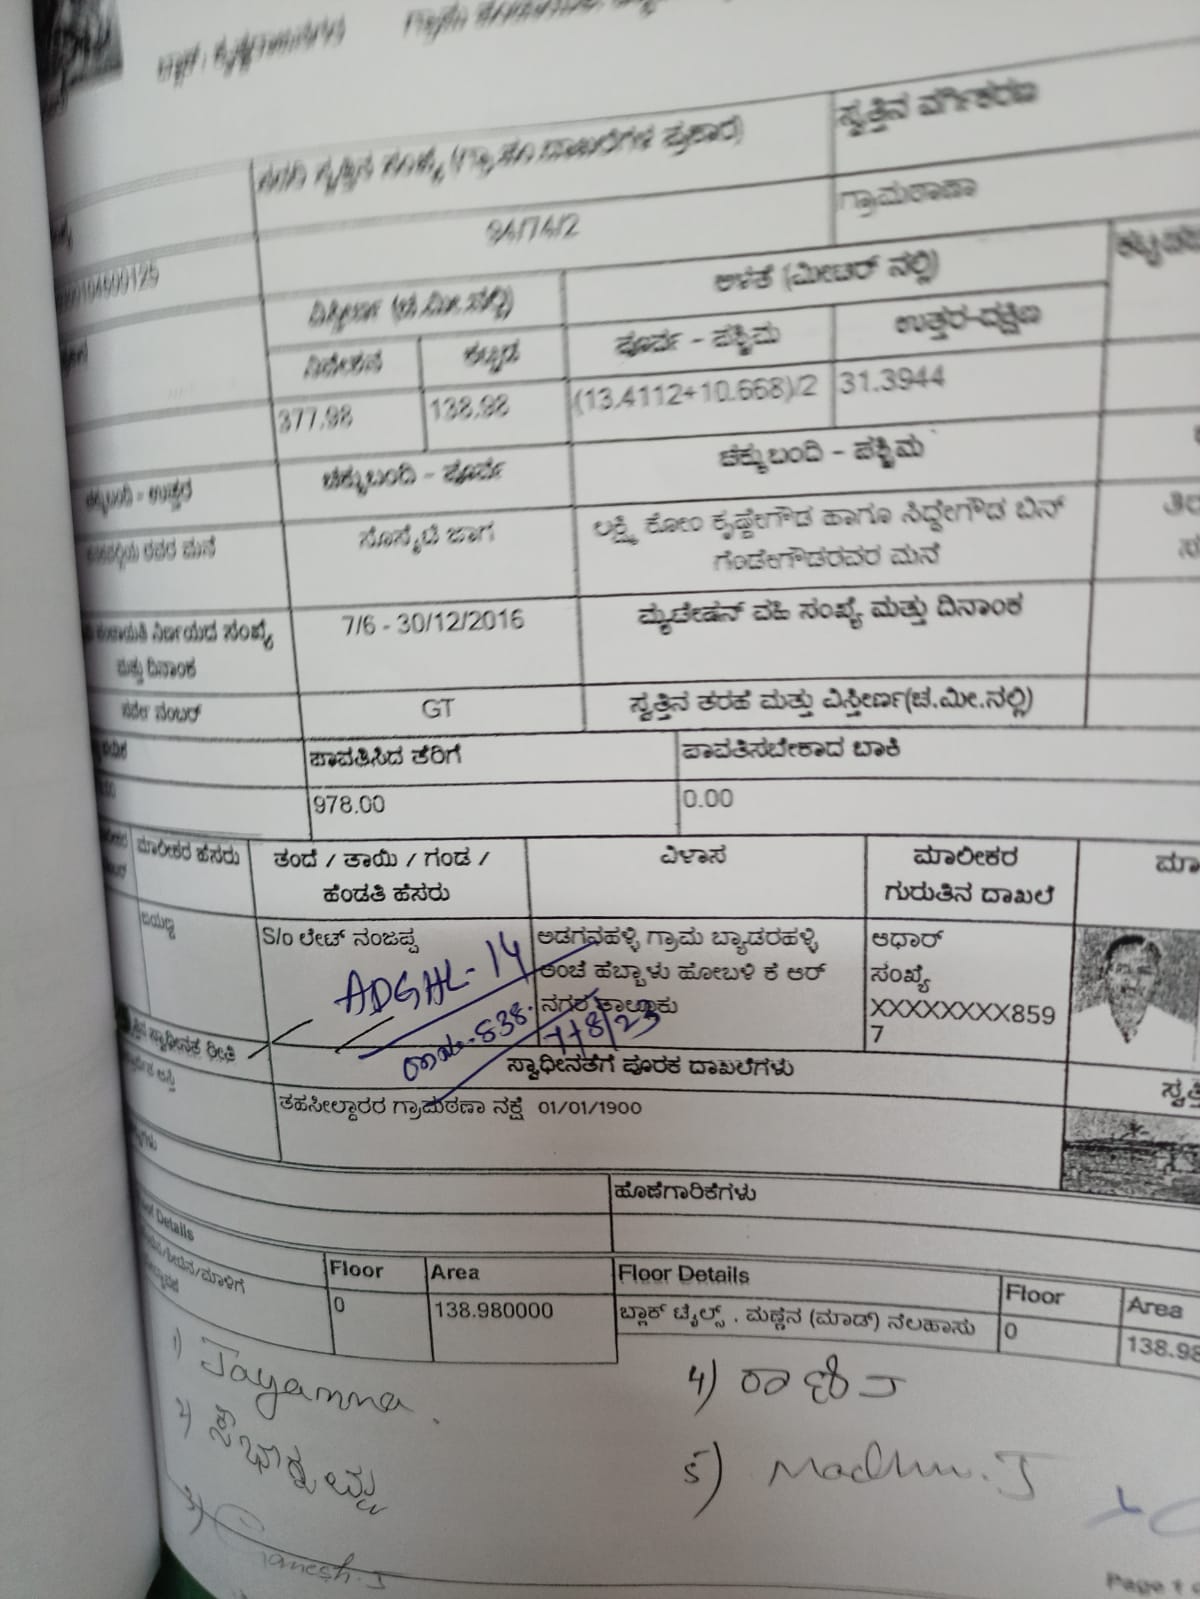 ಸ್ವತ್ತಿನ ವರ್ಗೀಕರಣ
94/74/2
ಗ್ರಾಮಠಾಣಾ
ವಿಸ್ತೀರ್ಣ (ಚ.ಮೀ.ನಲ್ಲಿ)
ಅಳತೆ (ಮೀಟರ್ ನಲ್ಲಿ)
ನಿವೇಶನ
ಕಟ್ಟಡ
ಪೂರ್ವ - ಪಶ್ಚಿಮ
ಉತ್ತರ-ದಕ್ಷಿಣ
377.98
138.98
(13.4112+10.668)/2
31.3944
ಚಕ್ಕುಬಂದಿ - ಉತ್ತರ
ಚಕ್ಕುಬಂದಿ - ಪೂರ್ವ
ಚಕ್ಕುಬಂದಿ - ಪಶ್ಚಿಮ
ರವರ ಮನೆ
ಸೊಸೈಟಿ ಜಾಗ
ಲಕ್ಷ್ಮಿ ಕೋಂ ಕೃಷ್ಣೇಗೌಡ ಹಾಗೂ ಸಿದ್ದೇಗೌಡ ಬಿನ್
ಗೆಂಡೇಗೌಡರವರ ಮನೆ
ಪಂಚಾಯತಿ ನಿರ್ಣಯದ ಸಂಖ್ಯೆ
ಮತ್ತು ದಿನಾಂಕ
7/6 - 30/12/2016
ಮ್ಯುಟೇಷನ್ ವಹಿ ಸಂಖ್ಯೆ ಮತ್ತು ದಿನಾಂಕ
ಸರ್ವೇ ನಂಬರ್
GT
ಸ್ವತ್ತಿನ ತರಹೆ ಮತ್ತು ವಿಸ್ತೀರ್ಣ(ಚ.ಮೀ.ನಲ್ಲಿ)
ಪಾವತಿಸಿದ ತೆರಿಗೆ
ಪಾವತಿಸಬೇಕಾದ ಬಾಕಿ
978.00
0.00
ಮಾಲೀಕರ ಹೆಸರು
ತಂದೆ / ತಾಯಿ / ಗಂಡ /
ಹೆಂಡತಿ ಹೆಸರು
ವಿಳಾಸ
ಮಾಲೀಕರ
ಗುರುತಿನ ದಾಖಲೆ
S/o ಲೇಟ್ ನಂಜಪ್ಪ
ಅಡಗನಹಳ್ಳಿ ಗ್ರಾಮ ಬ್ಯಾಡರಹಳ್ಳಿ
ಅಂಚೆ ಹೆಬ್ಬಾಳು ಹೋಬಳಿ ಕೆ ಆರ್
ನಗರ ತಾಲ್ಲೂಕು
ಆಧಾರ್
ಸಂಖ್ಯೆ
XXXXXXXX859
7
ADGHL-14
838
7/8/23
ಸ್ವಾಧೀನತೆ ರೀತಿ
ಸ್ವಾಧೀನತೆಗೆ ಪೂರಕ ದಾಖಲೆಗಳು
ತಹಸೀಲ್ದಾರರ ಗ್ರಾಮಠಣಾ ನಕ್ಷೆ 01/01/1900
ಹೊಣೆಗಾರಿಕೆಗಳು
Details
Floor
Area
Floor Details
Floor
Area
0
138.980000
ಬ್ಲಾಕ್ ಟೈಲ್ಸ್ . ಮಣ್ಣಿನ (ಮಾಡ್) ನೆಲಹಾಸು
0
138.98
1) Jayamma.
4) ರಾಣಿ J
5) Madhu. J
3) Ganesh. J
Page 1